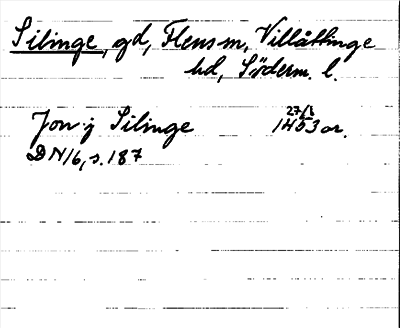 Silinge, gd, Flens sn, Villåttinge
hd, Söderm. l.
Jon j Silinge 27/1 1453 or.
DN 16, s. 187